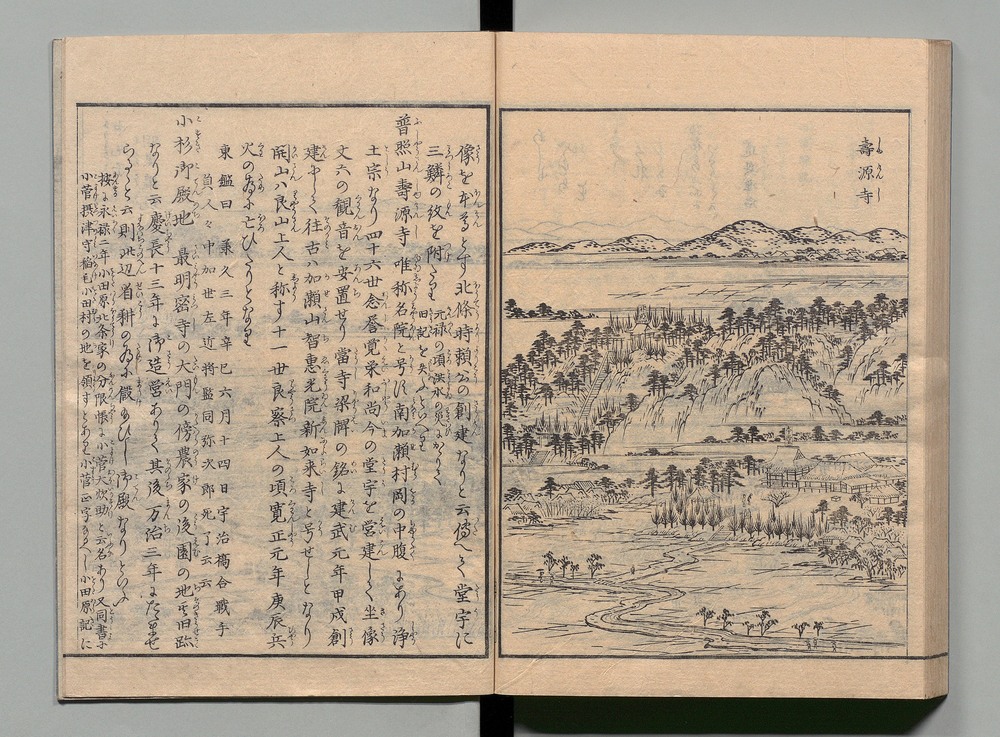 壽源寺
像を本尊とす北條時頼公の創建なりと云傳へて堂宇に
三鱗の紋を附たり 元禄の頃洪水の災にかかりて
旧記を失ふといへり
普照山壽源寺 唯称名院と号す南加瀬村岡の中腹にあり浄
土宗なり四十六世念誉覚栄和尚今の堂宇を営建して坐像
丈六の観音を安置せり當寺梁牌の銘に建武元年甲戌創
建やして往古ハ加瀬山智恵光院新如来寺と号せしとなり
開山ハ良山上人と称す十一世良察上人の頃寛正元年庚辰兵
火の為に亡ひたりとなり
東鑑曰 承久三年辛巳六月十四日宇治橋合戦手
負人々 中 加世左近将監同弥次郎死了云云
小杉御殿地 最明密寺の大門の傍農家の後園の地其旧跡
なりと云慶長十三年に御造営ありて其後万治三年にたたませ
らると云則此辺省耕の為に嚴あひし御殿なりといふ
按に永禄二年小田原北条家の分限帳に小菅大炊助と云名あり又同書に
小菅摂津守稲毛小田村の地を領すとあり小菅正字なるへし小田原記に